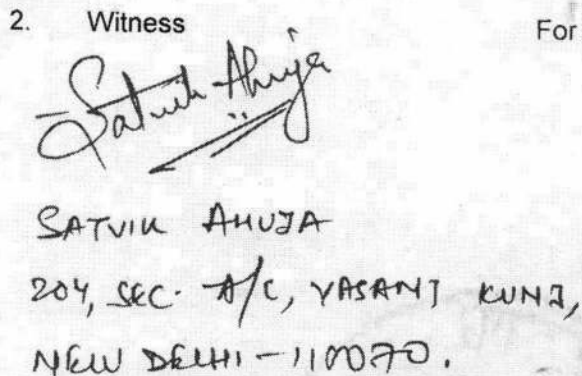 2. Witness For
Satvik Ahuja
SATVIK AHUJA
204, SEC. A/C, VASANT KUNJ,
NEW DELHI - 110070.